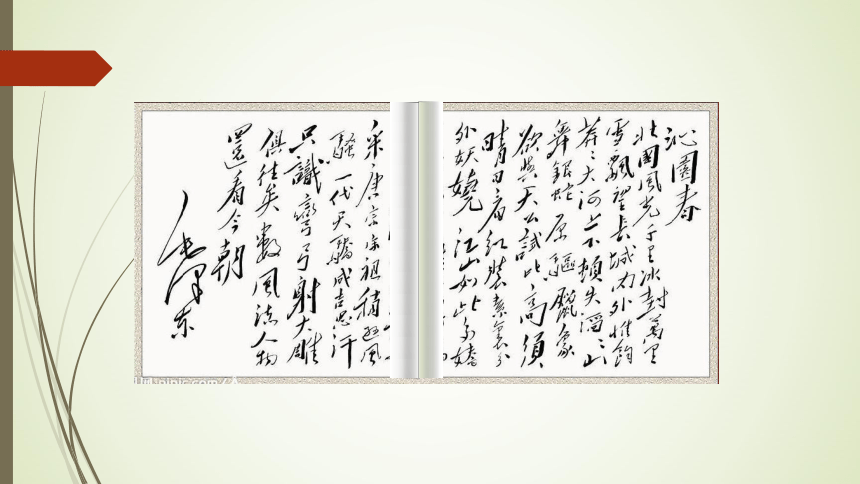 沁園春
北國風光千里冰封萬里
雪飄望長城內外惟餘
莽〻大河上下頓失滔〻山
舞銀蛇原驅臘象
欲與天公試比高須
晴日看紅裝素裹分
外妖嬈江山如此多嬌
采唐宗宋祖稍遜風
騷一代天驕成吉思汗
只識彎弓射大雕
俱往矣數風流人物
還看今朝
毛澤東
nipic.com/